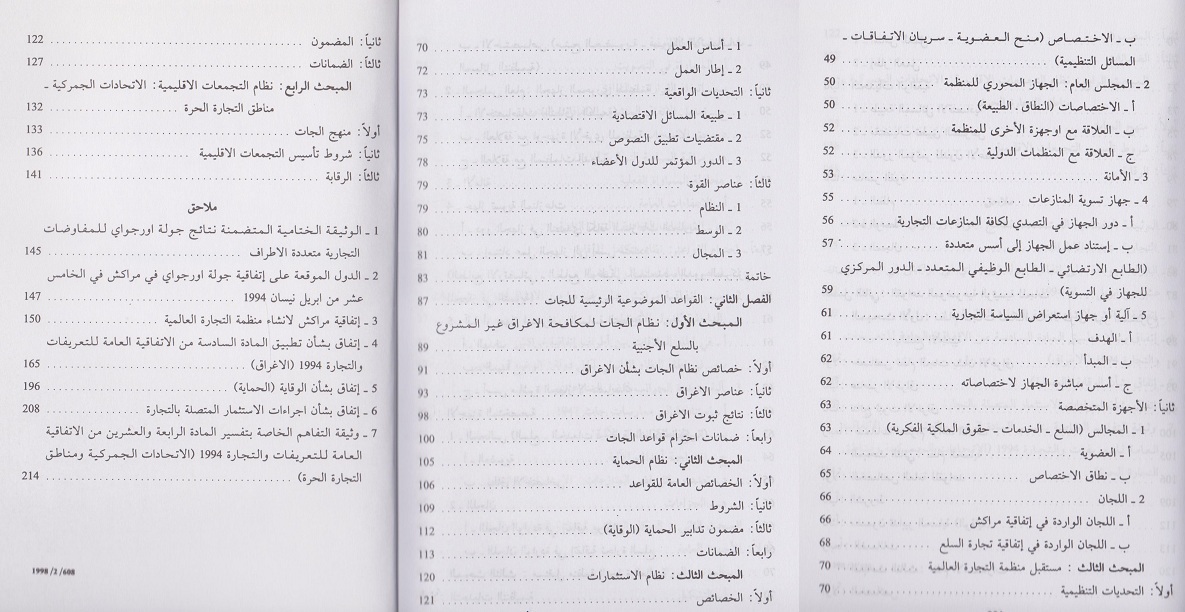 ب ـ الاختـصـاص (منـح العـضـويـة ـ سـريـان الاتـفـاقـات ـ
المسائل التنظيمية) ........ 49
2 ـ المجلس العام: الجهاز المحوري للمنظمة ........ 50
أ ـ الاختصاصات (النطاق . الطبيعة) ........ 50
ب ـ العلاقة مع اوجهزة الأخرى للمنظمة ........ 52
ج ـ العلاقة مع المنظمات الدولية ........ 52
3 ـ الأمانة ........ 53
4 ـ جهاز تسوية المنازعات ........ 55
أ ـ دور الجهاز في التصدي لكافة المنازعات التجارية ........ 56
ب ـ إستناد عمل الجهاز إلى أسس متعددة ........ 57
(الطابع الارتضائي ـ الطابع الوظيفي المتعدد ـ الدور المركزي
للجهاز في التسوية) ........ 59
5 ـ آلية أو جهاز استعراض السياسة التجارية ........ 61
أ ـ الهدف ........ 61
ب ـ المبدأ ........ 62
ج ـ أسس مباشرة الجهاز لاختصاصاته ........ 62
ثانياً: الأجهزة المتخصصة ........ 63
1 ـ المجالس (السلع ـ الخدمات ـ حقوق الملكية الفكرية) ........ 63
أ ـ العضوية ........ 64
ب ـ نطاق الاختصاص ........ 65
2 ـ اللجان ........ 66
أ ـ اللجان الواردة في إتفاقية مراكش ........ 66
ب ـ اللجان الواردة في إتفاقية تجارة السلع ........ 68
المبحث الثالث : مستقبل منظمة التجارة العالمية ........ 70
أولاً: التحديات التنظيمية ........ 70
1 ـ أساس العمل ........ 70
2 ـ إطار العمل ........ 72
ثانياً: التحديات الواقعية ........ 73
1 ـ طبيعة المسائل الاقتصادية ........ 73
2 ـ مقتضيات تطبيق النصوص ........ 75
3 ـ الدور المؤتمر للدول الأعضاء ........ 78
ثالثاً: عناصر القوة ........ 79
1 ـ النظام ........ 79
2 ـ الوسط ........ 80
3 ـ المجال ........ 81
خاتمة ........ 83
الفصل الثاني: القواعد الموضوعية الرئيسية للجات ........ 87
المبحث الأول: نـظـام الجات لـمكافحة الاغراق غيـر المشروع
بالسلع الأجنبية ........ 89
أولاً: خصائص نظام الجات بشأن الاغراق ........ 91
ثانياً: عناصر الاغراق ........ 93
ثالثاً: نتائج ثبوت الاغراق ........ 98
رابعاً: ضمانات احترام قواعد الجات ........ 100
المبحث الثاني: نظام الحماية ........ 105
أولاً: الخصائص العامة للقواعد ........ 106
ثانياً: الشروط ........ 109
ثالثاً: مضمون تدابير الحماية (الوقاية) ........ 112
رابعاً: الضمانات ........ 113
المبحث الثالث: نظام الاستثمارات ........ 120
أولاً: الخصائص ........ 121
ثانياً: المضمون ........ 122
ثالثاً: الضمانات ........ 127
المبحث الرابع: نظام التجمعات الاقليمية: الاتحادات الجمركية ـ
مناطق التجارة الحرة ........ 132
أولاً: منهج الجات ........ 133
ثانياً: شروط تأسيس التجمعات الاقليمية ........ 136
ثالثاً: الرقابة ........ 141
ملاحق
1 ـ الـوثيقة الختاميـة المتضمنة نتائج جولة اورجواي للـمفاوضات
التجارية متعددة الاطراف ........ 145
2 ـ الدول الموقعة على إتفاقية جولة اورجواي في مراكش في الخامس
عشر من ابريل نيسان 1994 ........ 147
3 ـ إتفاقية مراكش لانشاء منظمة التجارة العالمية ........ 150
4 ـ إتفاق بشأن تطبيق المادة السادسة من الاتفاقية العامة للتعريفات
والتجارة 1994 (الاغراق) ........ 165
5 ـ إتفاق بشأن الوقاية (الحماية) ........ 196
6 ـ إتفاق بشأن اجراءات الاستثمار المتصلة بالتجارة ........ 208
7 ـ وثيقة التفاهم الخاصة بتفسير المادة الرابعة والعشرين من الاتفاقية
العامة للتعريفات والتجارة 1994 (الاتحادات الجمركية ومناطق
التجارة الحرة) ........ 214
1998/2/608